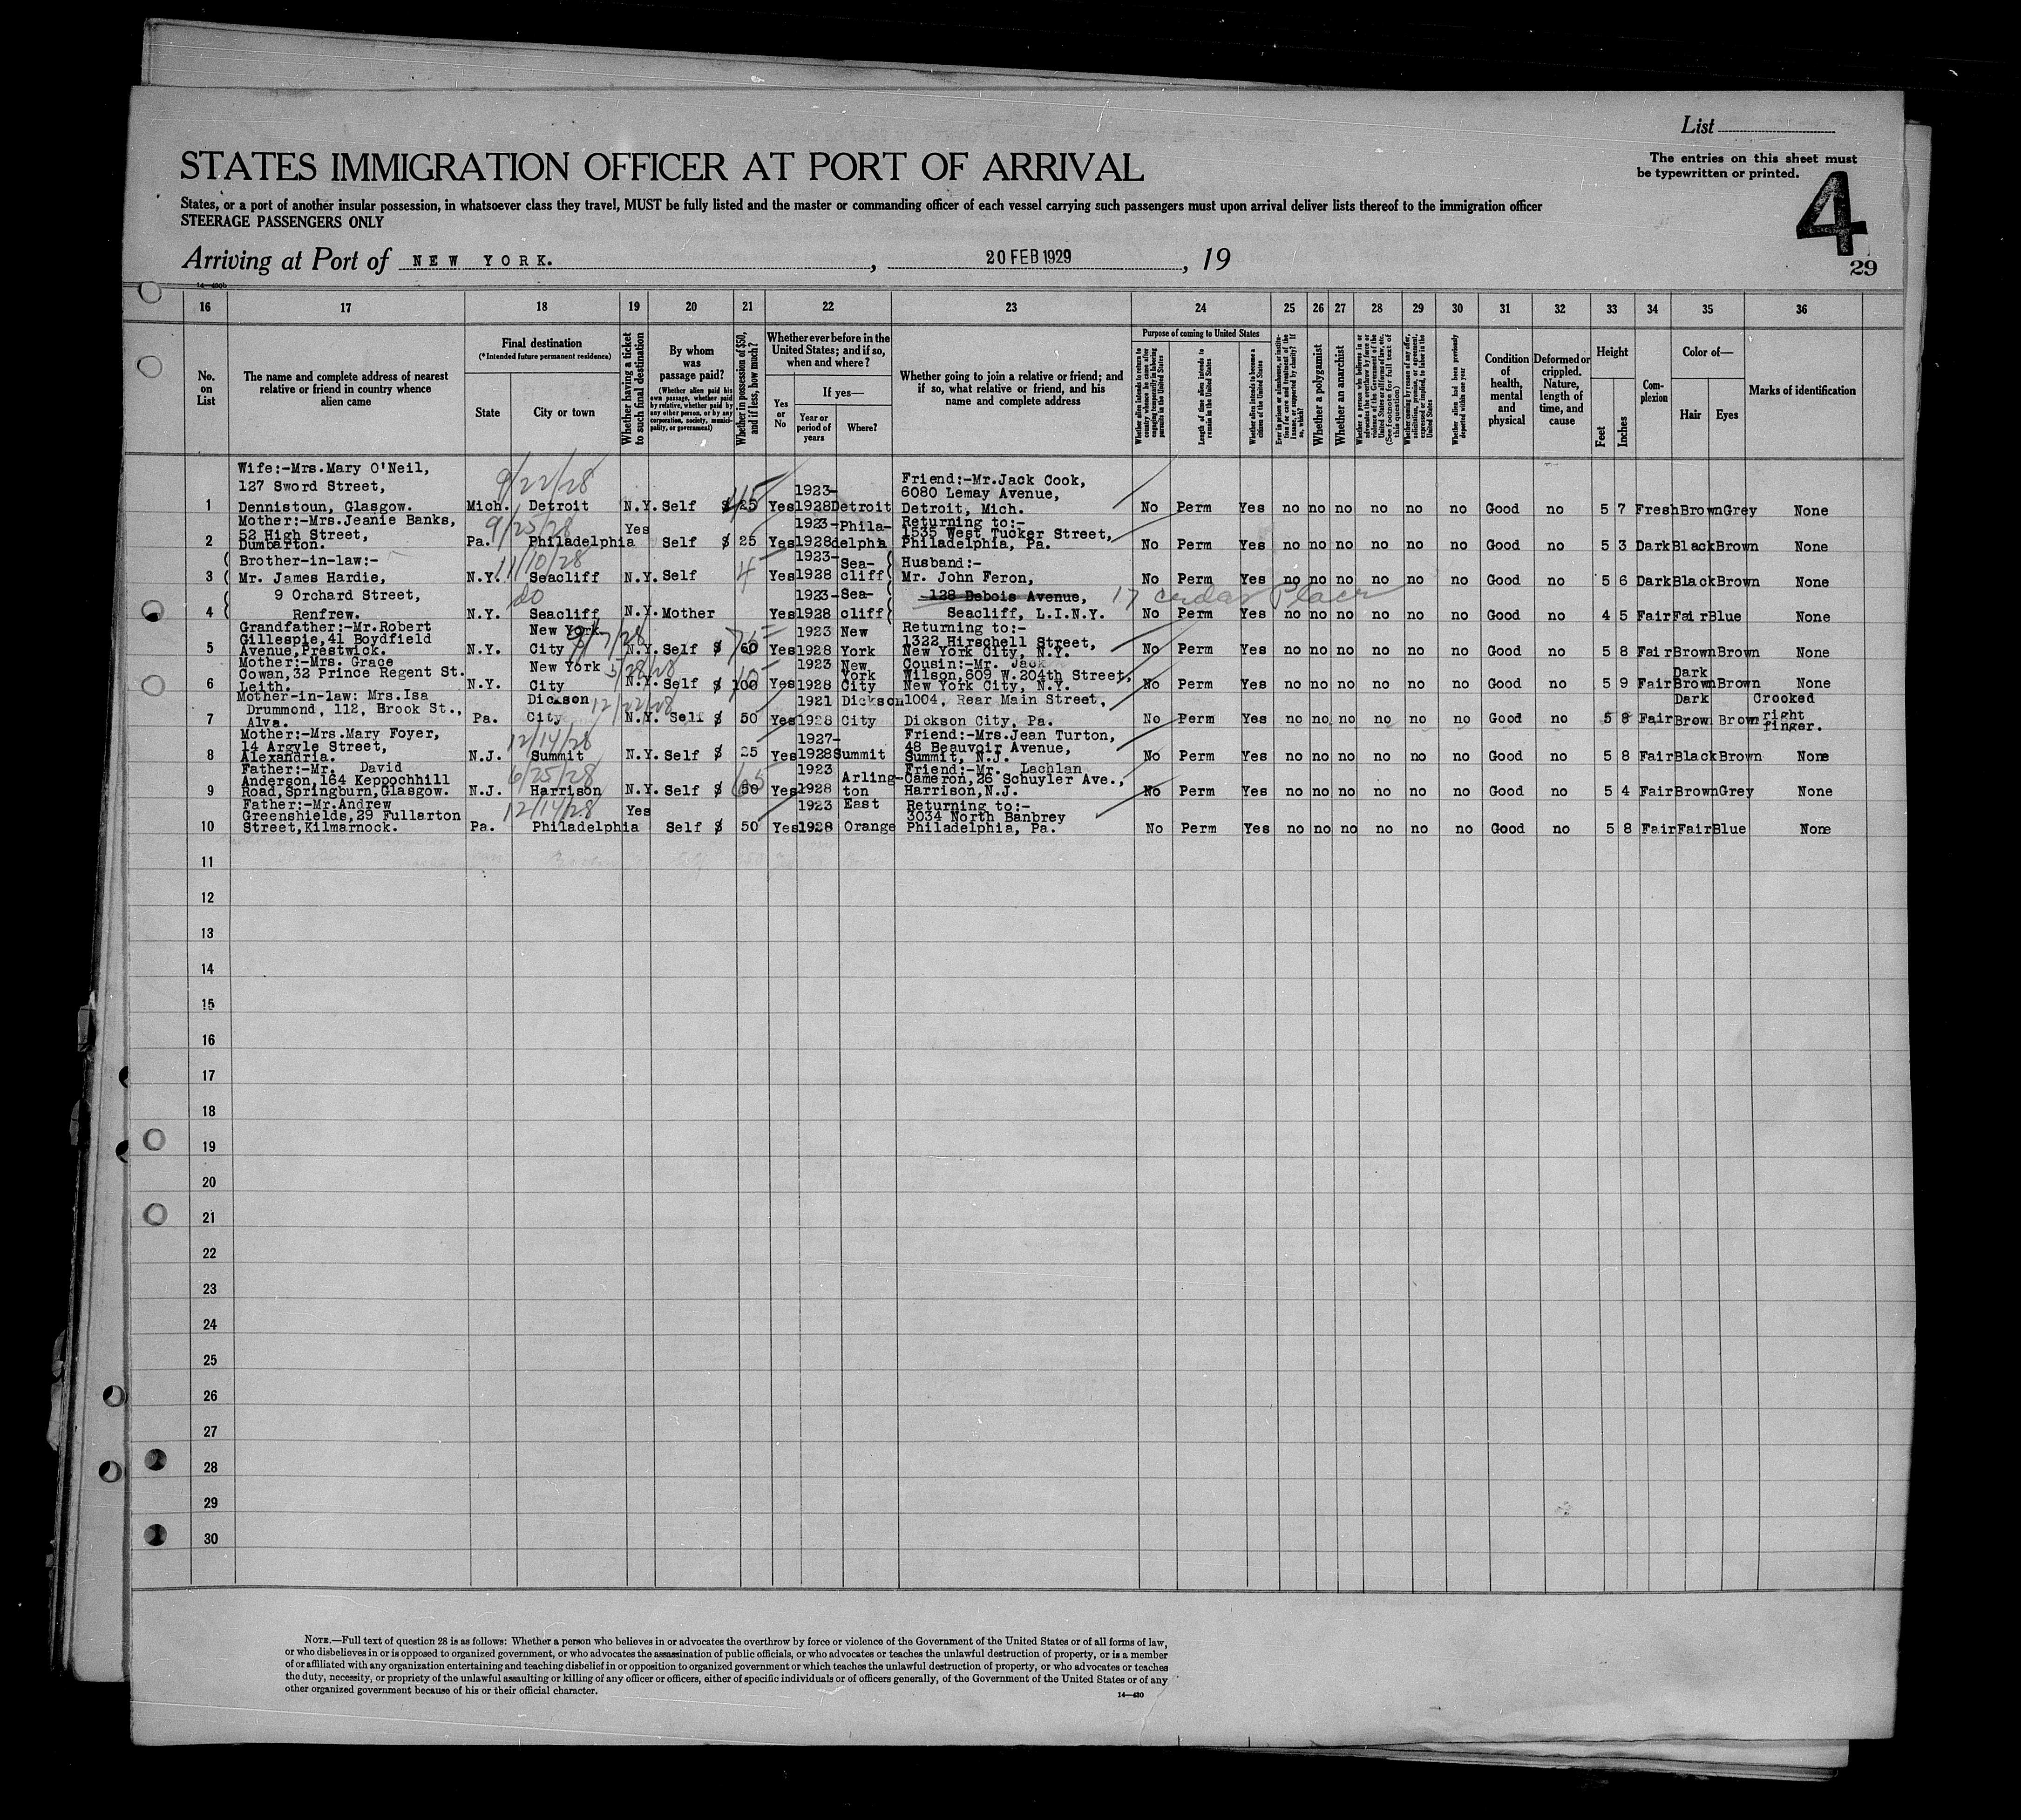 List
The entries on this sheet must
be typewritten or printed.
4
29
STATES IMMIGRATION OFFICER AT PORT OF ARRIVAL
States, or a port of another insular possession, in whatsoever class they travel, MUST be fully listed and the master or commanding officer of each vessel carrying such passengers must upon arrival deliver lists thereof to the immigration officer
STEERAGE PASSENGERS ONLY
Arriving at Port of NEW YORK. , 20 FEB 1929 , 19
16 17 18 19 20 21 22 23 24 25 26 27 28 29 30 31 32 33 34 35 36
No. on List
The name and complete address of nearest relative or friend in country whence alien came
Final destination
(*Intended future permanent residence)
State City or town
Whether having a ticket to such final destination
By whom was passage paid?
(Whether alien paid his own passage, whether paid by relative, whether paid by any other person, or by any corporation, society, municipality, or government)
Whether in possession of $50, and if less, how much?
Whether ever before in the United States; and if so, when and where?
Yes or No
If yes—
Year or period of years
Where?
Whether going to join a relative or friend; and if so, what relative or friend, and his name and complete address
Purpose of coming to United States
Length of time alien intends to remain in the United States
Whether alien intends to become a citizen of the United States
Whether a polygamist
Whether an anarchist
Condition of health, mental and physical
Deformed or crippled. Nature, length of time, and cause
Height
Feet Inches
Complexion
Color of—
Hair Eyes
Marks of identification
Wife:-Mrs.Mary O'Neil,
127 Sword Street,
Dennistoun, Glasgow.
1 Mich. Detroit 9/22/28 N.Y. Self $ 25 45 Yes 1923-1928 Detroit
Friend:-Mr.Jack Cook,
6080 Lemay Avenue,
Detroit, Mich.
No Perm Yes no no no no no no Good no 5 7 Fresh Brown Grey None
Mother:-Mrs.Jeanie Banks,
52 High Street,
Dumbarton.
2 Pa. Philadelphia 9/25/28 Yes Self $ 25 Yes 1923-1928 Philadelphia
Returning to:-
1535 West Tucker Street,
Philadelphia, Pa.
No Perm Yes no no no no no no Good no 5 3 Dark Black Brown None
Brother-in-law:-
Mr. James Hardie,
9 Orchard Street,
Renfrew.
3 N.Y. Seacliff 11/10/28 N.Y. Self Yes 1923-1928 Seacliff
Husband:-
Mr. John Feron,
128 Debois Avenue, 17 cedar Place
Seacliff, L.I.N.Y.
No Perm Yes no no no no no no Good no 5 6 Dark Black Brown None
4 N.Y. Seacliff do N.Y. Mother Yes 1923-1928 Seacliff
No Perm Yes no no no no no no Good no 4 5 Fair Fair Blue None
Grandfather:-Mr.Robert
Gillespie,41 Boydfield
Avenue,Prestwick.
5 N.Y. New York City 9/7/28 N.Y. Self $ 60 Yes 1923 1928 New York
Returning to:-
1322 Hirschell Street,
New York City, N.Y.
No Perm Yes no no no no no no Good no 5 8 Fair Brown Brown None
Mother:-Mrs. Grace
Cowan,32 Prince Regent St.
Leith.
6 N.Y. New York City N.Y. Self $ 100 Yes 1923 1928 New York City
Cousin:-Mr. Jack
Wilson,609 W.204th Street,
New York City, N.Y.
No Perm Yes no no no no no no Good no 5 9 Fair Dark Brown Brown None
Mother-in-law: Mrs.Isa
Drummond, 112, Brook St.,
Alva.
7 Pa. Dickson City 12/22/28 N.Y. Self $ 50 Yes 1921 1928 Dickson City
1004, Rear Main Street,
Dickson City, Pa.
No Perm Yes no no no no no no Good no 5 8 Fair Dark Brown Brown Crooked right finger.
Mother:-Mrs.Mary Foyer,
14 Argyle Street,
Alexandria.
8 N.J. Summit 12/14/28 N.Y. Self $ 25 Yes 1927-1928 Summit
Friend:-Mrs.Jean Turton,
48 Beauvoir Avenue,
Summit, N.J.
No Perm Yes no no no no no no Good no 5 8 Fair Black Brown None
Father:-Mr. David
Anderson,164 Keppochhill
Road,Springburn,Glasgow.
9 N.J. Harrison 6/25/28 N.Y. Self $ 50 65 Yes 1923 1928 Arlington
Friend:-Mr. Lachlan
Cameron,26 Schuyler Ave.,
Harrison,N.J.
No Perm Yes no no no no no no Good no 5 4 Fair Brown Grey None
Father:-Mr.Andrew
Greenshields,29 Fullarton
Street,Kilmarnock.
10 Pa. Philadelphia 12/14/28 Yes Self $ 50 Yes 1923 1928 East Orange
Returning to:-
3034 North Banbrey
Philadelphia, Pa.
No Perm Yes no no no no no no Good no 5 8 Fair Fair Blue None
11
12
13
14
15
16
17
18
19
20
21
22
23
24
25
26
27
28
29
30
NOTE.—Full text of question 28 is as follows: Whether a person who believes in or advocates the overthrow by force or violence of the Government of the United States or of all forms of law,
or who disbelieves in or is opposed to organized government, or who advocates the assassination of public officials, or who advocates or teaches the unlawful destruction of property, or is a member
of or affiliated with any organization entertaining and teaching disbelief in or opposition to organized government or which teaches the unlawful destruction of property, or who advocates or teaches
the duty, necessity, or propriety of the unlawful assaulting or killing of any officer or officers, either of specific individuals or of officers generally, of the Government of the United States or of any
other organized government because of his or their official character.
14—430